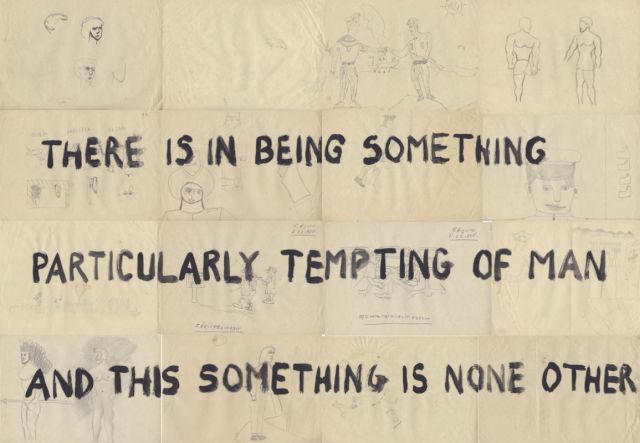 THERE IS IN BEING SOMETHING
PARTICULARLY TEMPTING OF MAN
AND THIS SOMETHING IS NONE OTHER